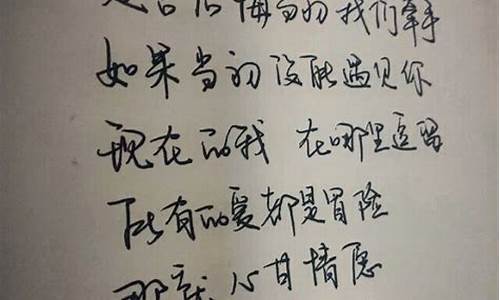 是否后悔当初我们牵手
如果当初没能遇见你
现在的我 在哪里逗留
所有的爱都是冒险
那就心甘情愿